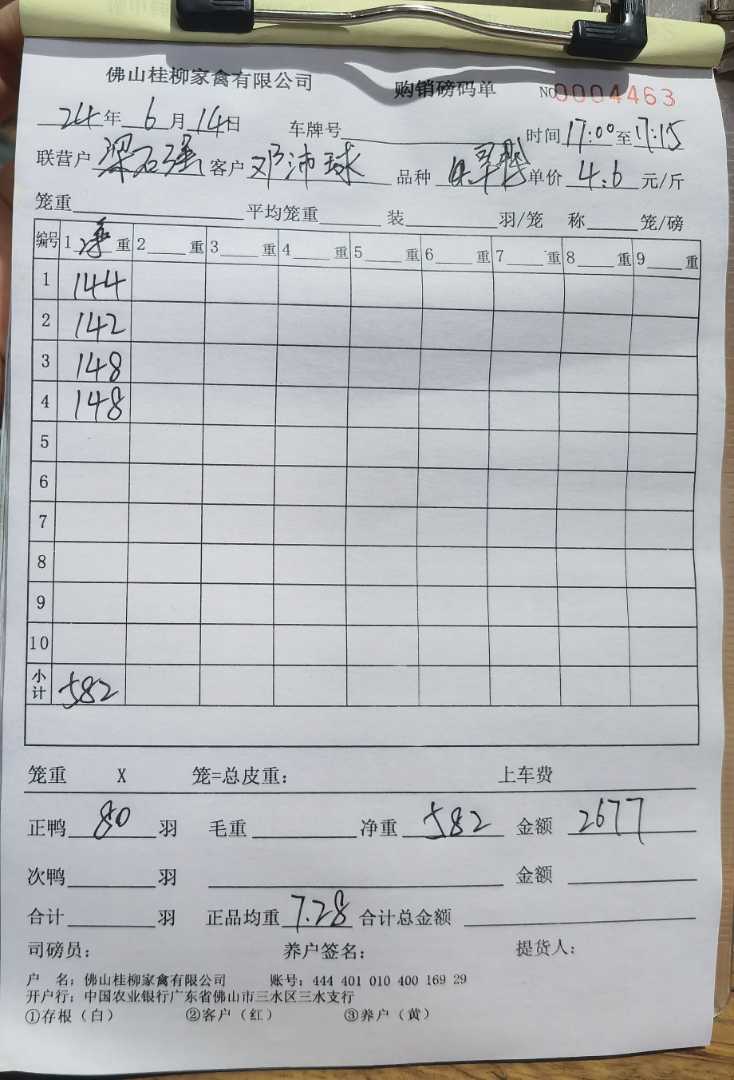 佛山桂柳家禽有限公司 购销磅码单 NO 0004463
24年6月14日 车牌号 时间17:00至17:15
联营户 梁石强 客户 邓沛球 品种 单价 4.6 元/斤
笼重 平均笼重 装 羽/笼 称 笼/磅
编号 1 净 重 2 重 3 重 4 重 5 重 6 重 7 重 8 重 9 重
1 144
2 142
3 148
4 148
5
6
7
8
9
10
小计 582
笼重 X 笼=总皮重: 上车费
正鸭 80 羽 毛重 净重 582 金额 2677
次鸭 羽 金额
合计 羽 正品均重 7.28 合计总金额
司磅员: 养户签名: 提货人:
户 名: 佛山桂柳家禽有限公司 账号: 444 401 010 400 169 29
开户行: 中国农业银行广东省佛山市三水区三水支行
①存根(白) ②客户(红) ③养户(黄)